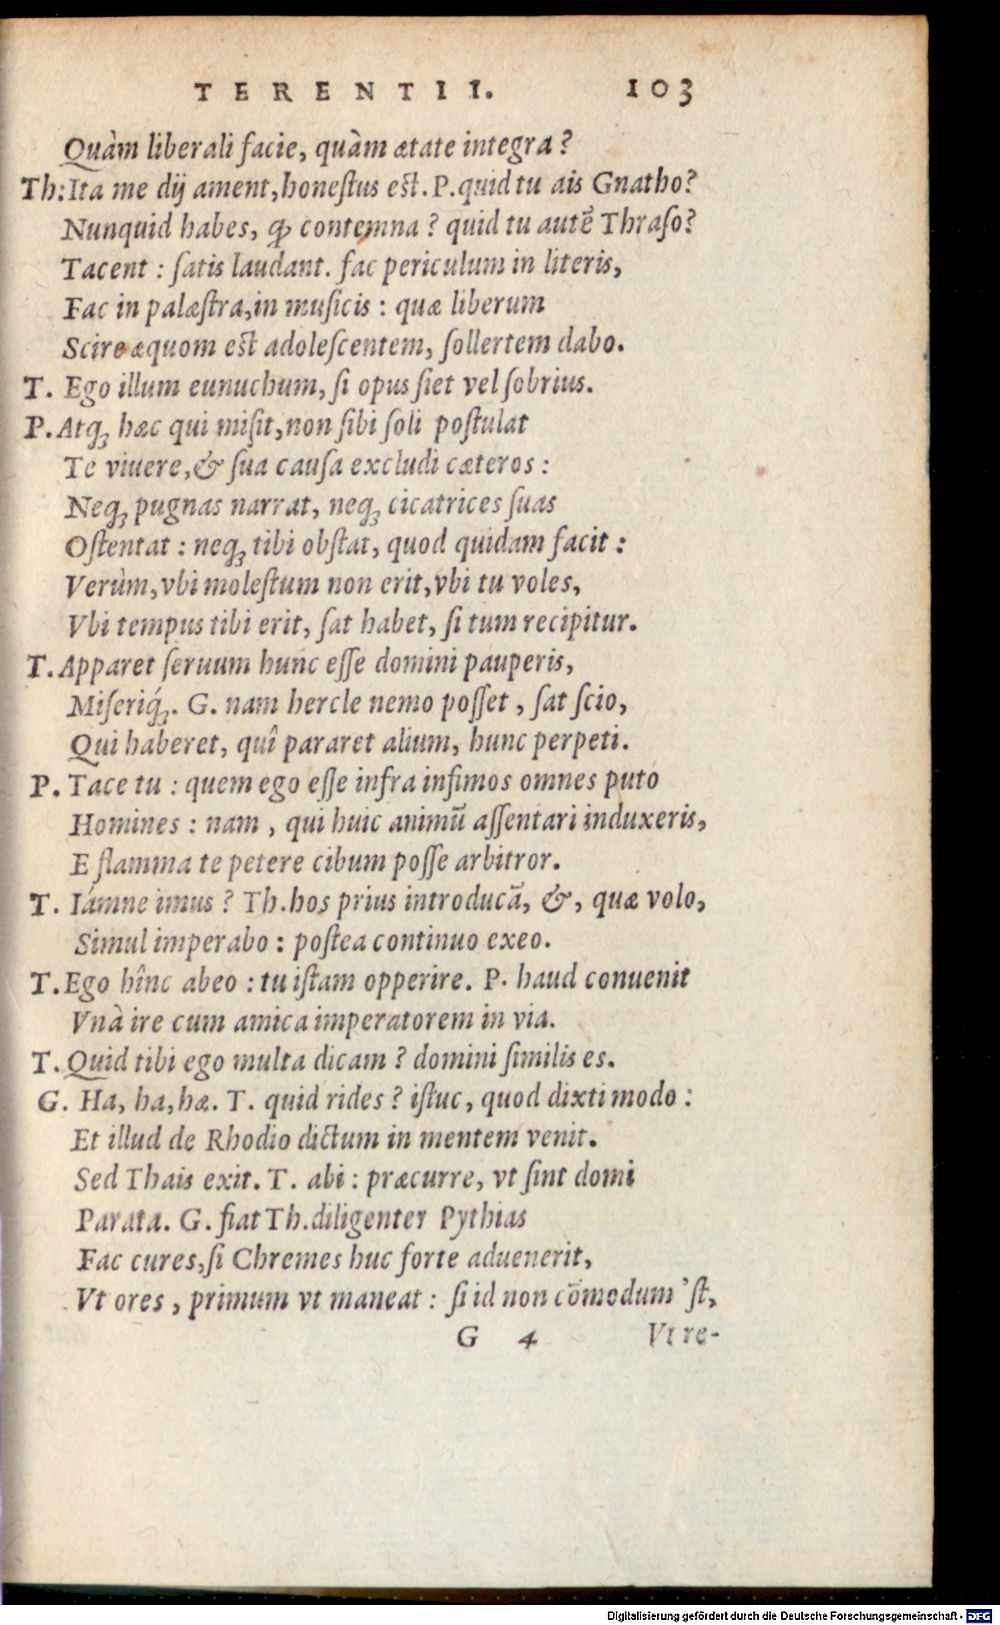 TERENTII. 103
Quàm liberali facie, quàm ætate integra?
Th: Ita me dij ament, honeſtus eſt. P. quid tu ais Gnatho?
Nunquid habes, qđ contemna? quid tu autē Thraſo?
Tacent: ſatis laudant. fac periculum in literis,
Fac in palæſtra, in muſicis: quæ liberum
Scire æquom eſt adoleſcentem, ſollertem dabo.
T. Ego illum eunuchum, ſi opus ſiet vel ſobrius.
P. Atq́ꝫ hæc qui miſit, non ſibi ſoli poſtulat
Te viuere, & ſua cauſa excludi cæteros:
Neqꝫ pugnas narrat, neqꝫ cicatrices ſuas
Oſtentat: neqꝫ tibi obſtat, quod quidam facit:
Verùm, vbi moleſtum non erit, vbi tu voles,
Vbi tempus tibi erit, ſat habet, ſi tum recipitur.
T. Apparet ſeruum hunc eſſe domini pauperis,
Miſeriq́ꝫ. G. nam hercle nemo poſſet, ſat ſcio,
Qui haberet, quî pararet alium, hunc perpeti.
P. Tace tu: quem ego eſſe infra infimos omnes puto
Homines: nam, qui huic animū aſſentari induxeris,
E flamma te petere cibum poſſe arbitror.
T. Iámne imus? Th. hos prius introducā, &, quæ volo,
Simul imperabo: poſtea continuo exeo.
T. Ego hînc abeo: tu iſtam opperire. P. haud conuenit
Vnà ire cum amica imperatorem in via.
T. Quid tibi ego multa dicam? domini ſimilis es.
G. Ha, ha, hæ. T. quid rides? iſtuc, quod dixti modo:
Et illud de Rhodio dictum in mentem venit.
Sed Thais exit. T. abi: præcurre, vt ſint domi
Parata. G. fiat Th. diligenter Pythias
Fac cures, ſi Chremes huc forte aduenerit,
Vt ores, primum vt maneat: ſi id non cōmodum 'ſt,
G 4 Vt re-
Digitalisierung gefördert durch die Deutsche Forschungsgemeinschaft - DFG